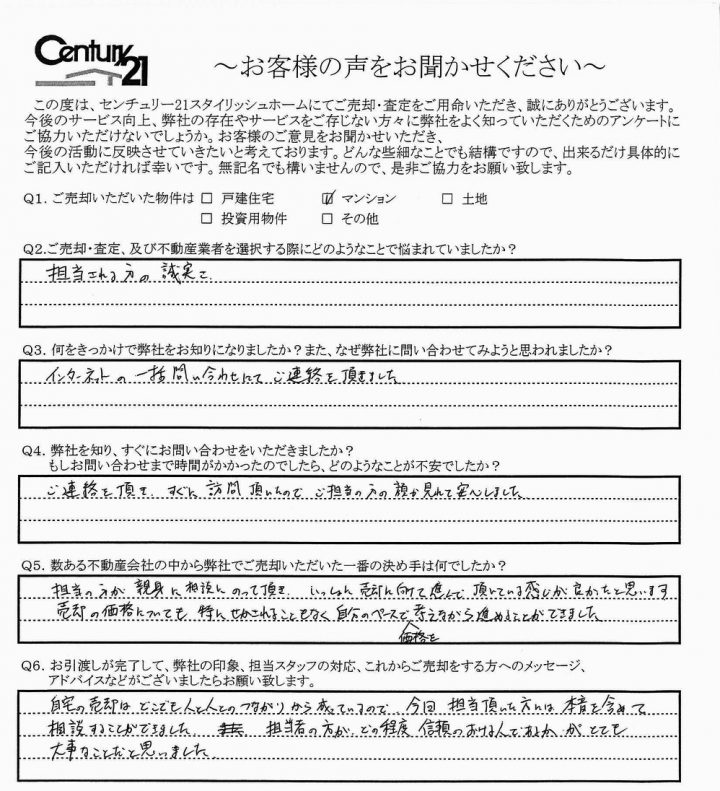 Century 21
～お客様の声をお聞かせください～
この度は、センチュリー21スタイリッシュホームにてご売却・査定をご用命いただき、誠にありがとうございます。
今後のサービス向上、弊社の存在やサービスをご存じない方々に弊社をよく知っていただくためのアンケートに
ご協力いただけないでしょうか。お客様のご意見をお聞かせいただき、
今後の活動に反映させていきたいと考えております。どんな些細なことでも結構ですので、出来るだけ具体的に
ご記入いただければ幸いです。無記名でも構いませんので、是非ご協力をお願い致します。
Q1. ご売却いただいた物件は □ 戸建住宅 ☑ マンション □ 土地
□ 投資用物件 □ その他
Q2.ご売却・査定、及び不動産業者を選択する際にどのようなことで悩まれていましたか？
担当される方の誠実さ
Q3. 何をきっかけで弊社をお知りになりましたか？また、なぜ弊社に問い合わせてみようと思われましたか？
インターネットの一括問い合わせにてご連絡を頂きました
Q4. 弊社を知り、すぐにお問い合わせをいただきましたか？
もしお問い合わせまで時間がかかったのでしたら、どのようなことが不安でしたか？
ご連絡を頂き、すぐに訪問頂いたので ご担当の方の顔が見れて安心しました
Q5. 数ある不動産会社の中から弊社でご売却いただいた一番の決め手は何でしたか？
担当の方が親身に相談にのって頂き、いっしょに売却に向けて進んで頂いている感じが良かったと思います
売却の価格についても特にせかされることもなく自分のペースで考えながら進めることができました
価格を
Q6. お引渡しが完了して、弊社の印象、担当スタッフの対応、これからご売却をする方へのメッセージ、
アドバイスなどがございましたらお願い致します。
自宅の売却はどこでも人と人とのつながりから成っているので、今回担当頂いた方には本音を含めて
相談することができました。担当者の方が、どの程度信頼のおける人であるか がとても
大事なことだと思いました。